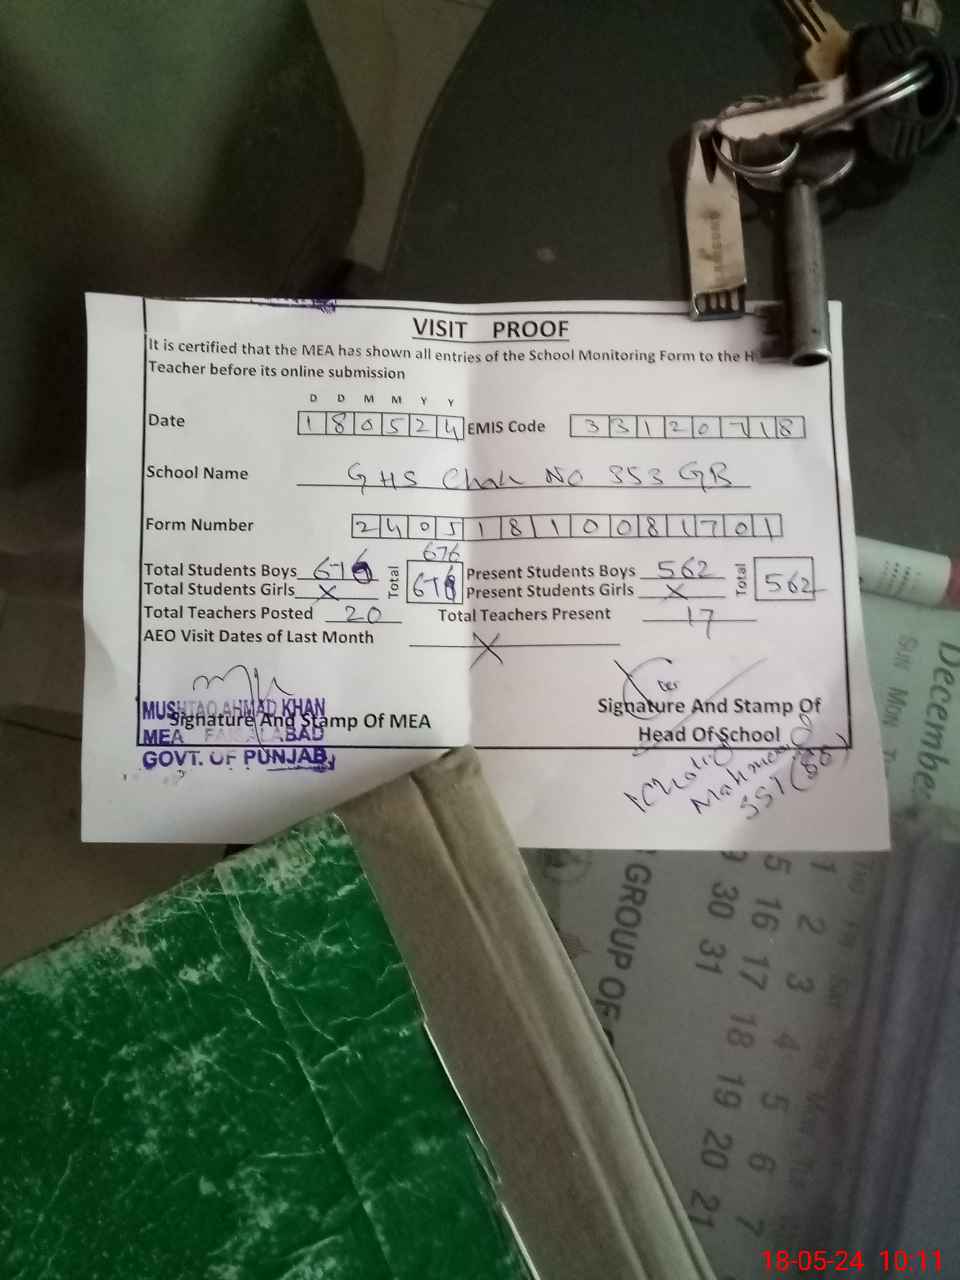 VISIT PROOF
It is certified that the MEA has shown all entries of the School Monitoring Form to the H
Teacher before its online submission
D D M M Y Y
Date 1 8 0 5 2 4 EMIS Code 3 3 1 2 0 7 1 8
School Name GHS Chak NO 353 GB
Form Number 2 4 0 5 1 8 1 0 0 8 1 7 0 1
676
Total Students Boys 676 Total 676 Present Students Boys 562 Total 562
Total Students Girls X Present Students Girls X
Total Teachers Posted 20 Total Teachers Present 17
AEO Visit Dates of Last Month X
MUSHTAQ AHMAD KHAN
Signature And Stamp Of MEA
MEA FAISALABAD
GOVT. OF PUNJAB
Signature And Stamp Of
Head Of School
Khalid
Mahmood
SST
December
SUN MON
GROUP OF
1 2 3 4 5 6 7
15 16 17 18 19 20 21
30 31
18-05-24 10:11